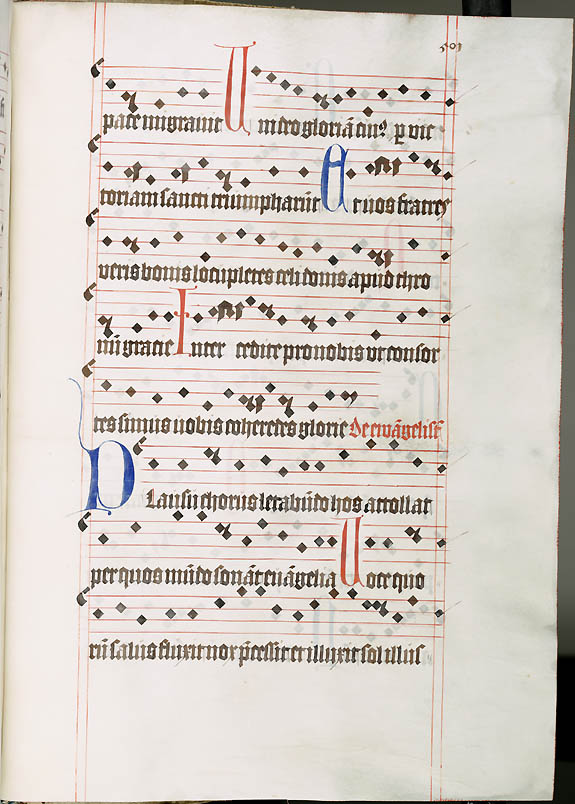 503
pace migravit Un deo gloriā eiuꝰ ꝑ vic
toriam sancti triumpharūt At uos fratres
veris bonis locupletes celi donis apud chro
mi gracie Inter cedite pro nobis vt consor
tes simus uobis coheredes glorie De ewāgelist
Plausu chorus letabūdo hos attollat
per quos mūdo sonāt euāgelia Uoce quo
rū salus fluxit nox p̄cessit et illuxit sol illus